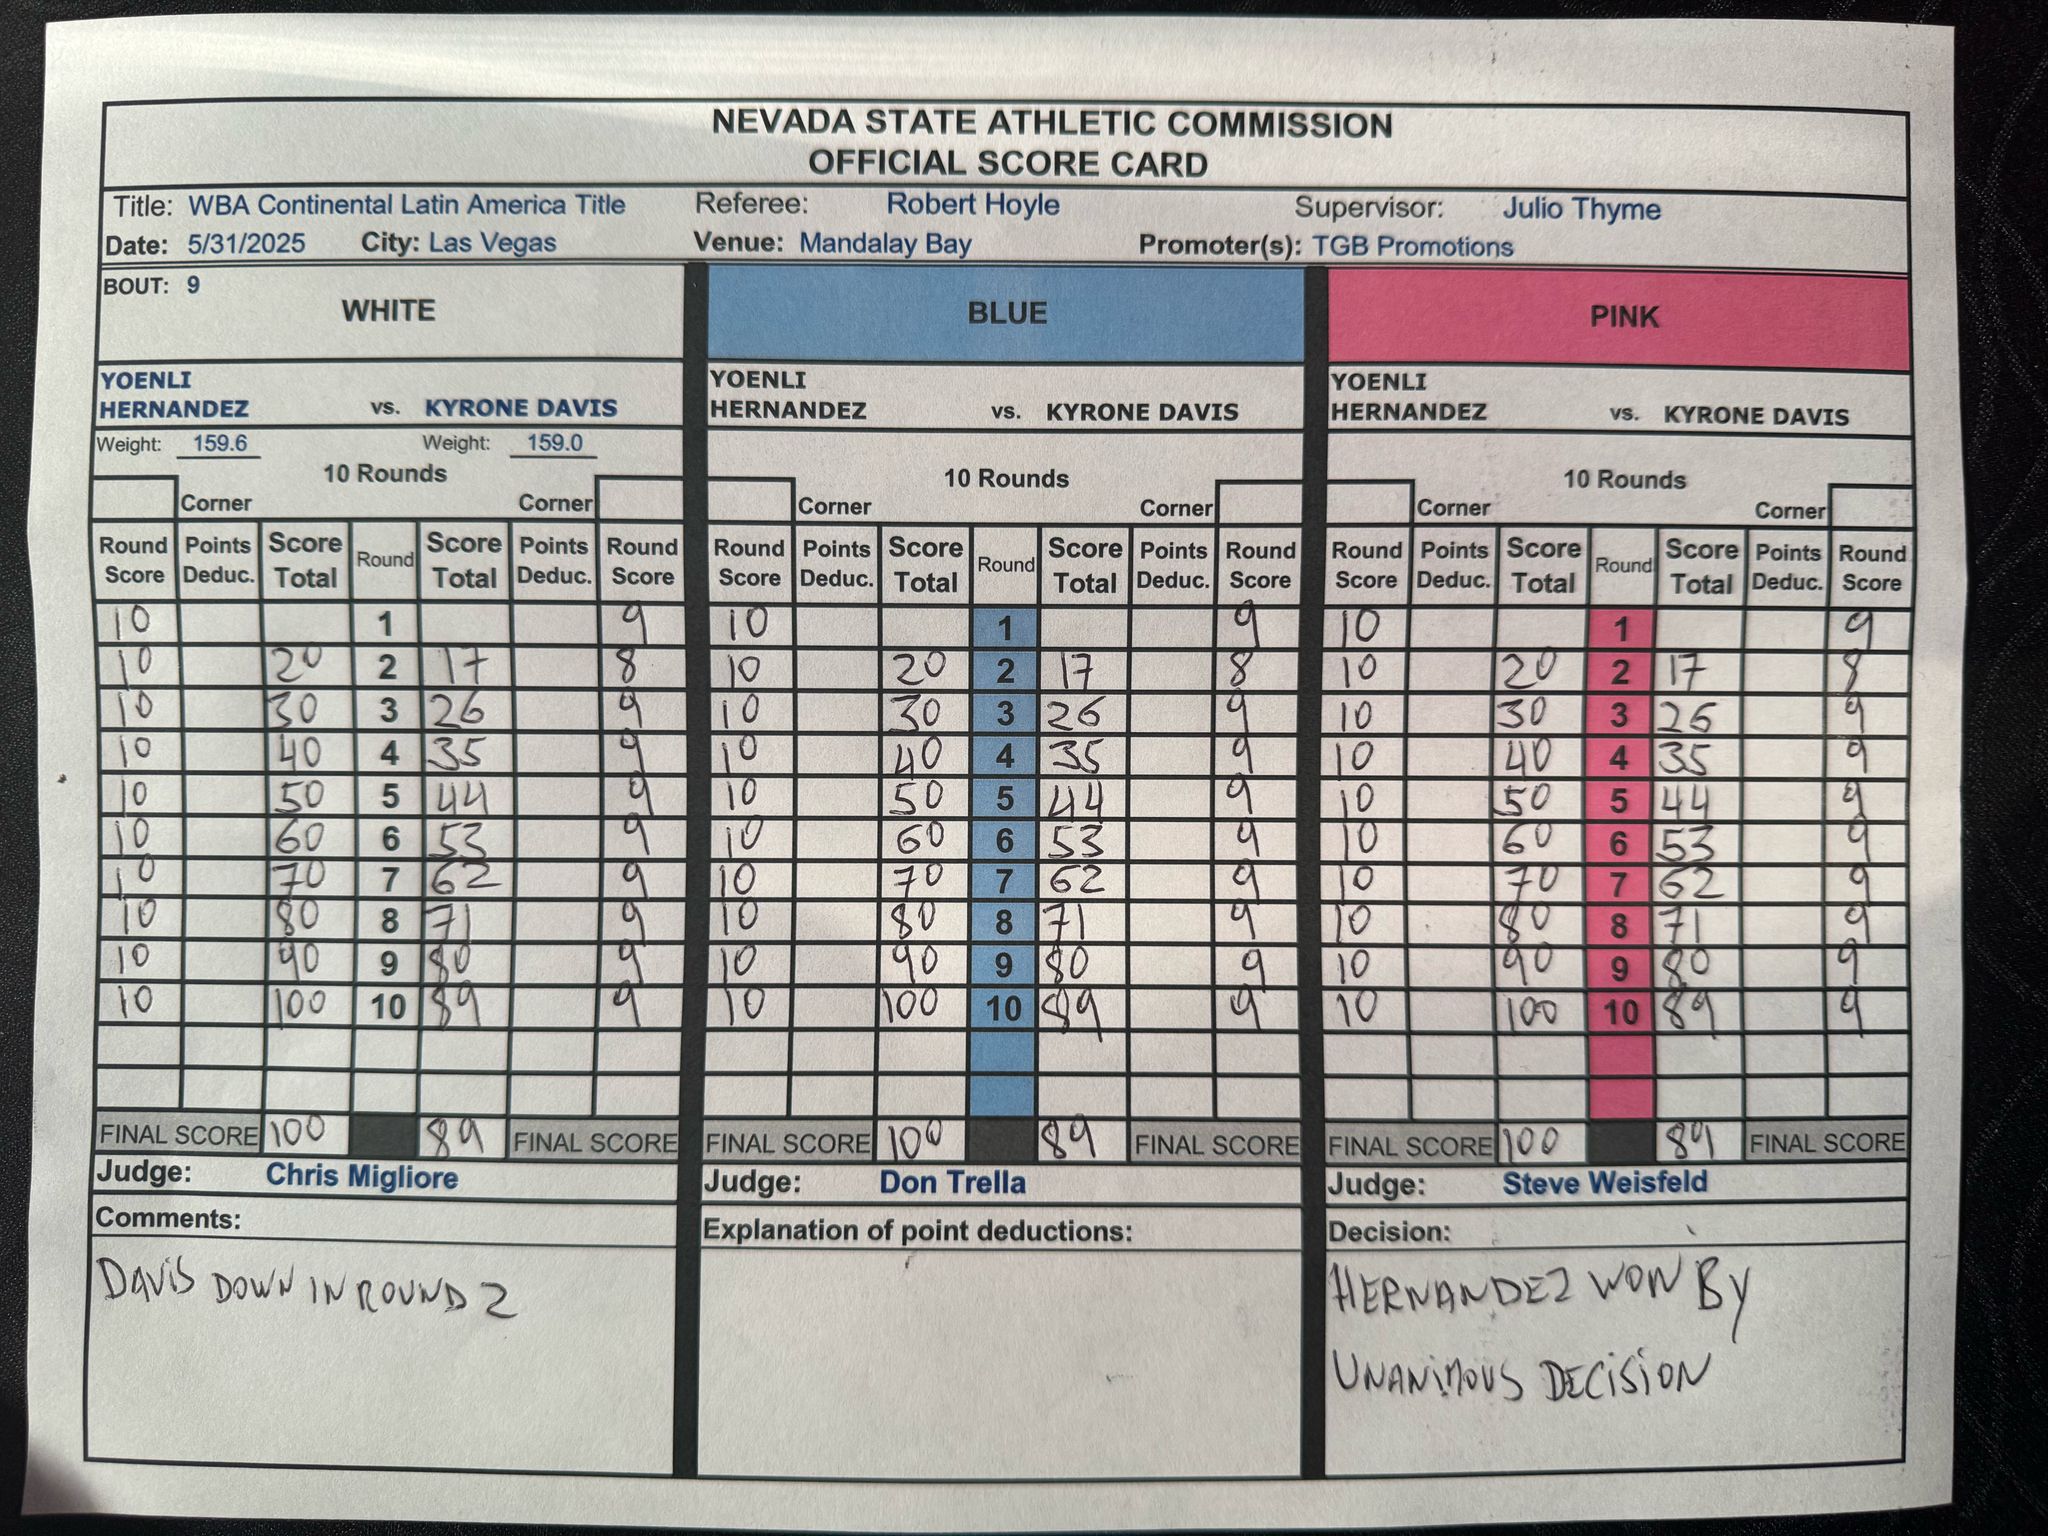 NEVADA STATE ATHLETIC COMMISSION
OFFICIAL SCORE CARD
Title: WBA Continental Latin America Title Referee: Robert Hoyle Supervisor: Julio Thyme
Date: 5/31/2025 City: Las Vegas Venue: Mandalay Bay Promoter(s): TGB Promotions
BOUT: 9
WHITE BLUE PINK
YOENLI YOENLI YOENLI
HERNANDEZ vs. KYRONE DAVIS HERNANDEZ vs. KYRONE DAVIS HERNANDEZ vs. KYRONE DAVIS
Weight: 159.6 Weight: 159.0
10 Rounds 10 Rounds 10 Rounds
Corner Corner Corner Corner Corner Corner
Round Points Score Round Score Points Round Round Points Score Round Score Points Round Round Points Score Round Score Points Round
Score Deduc. Total Total Deduc. Score Score Deduc. Total Total Deduc. Score Score Deduc. Total Total Deduc. Score
10 1 9 10 1 9 10 1 9
10 20 2 17 8 10 20 2 17 8 10 20 2 17 8
10 30 3 26 9 10 30 3 26 9 10 30 3 26 9
10 40 4 35 9 10 40 4 35 9 10 40 4 35 9
10 50 5 44 9 10 50 5 44 9 10 50 5 44 9
10 60 6 53 9 10 60 6 53 9 10 60 6 53 9
10 70 7 62 9 10 70 7 62 9 10 70 7 62 9
10 80 8 71 9 10 80 8 71 9 10 80 8 71 9
10 90 9 80 9 10 90 9 80 9 10 90 9 80 9
10 100 10 89 9 10 100 10 89 9 10 100 10 89 9
FINAL SCORE 100 89 FINAL SCORE FINAL SCORE 100 89 FINAL SCORE FINAL SCORE 100 89 FINAL SCORE
Judge: Chris Migliore Judge: Don Trella Judge: Steve Weisfeld
Comments: Explanation of point deductions: Decision:
DAVIS DOWN IN ROUND 2
HERNANDEZ WON BY
UNANIMOUS DECISION